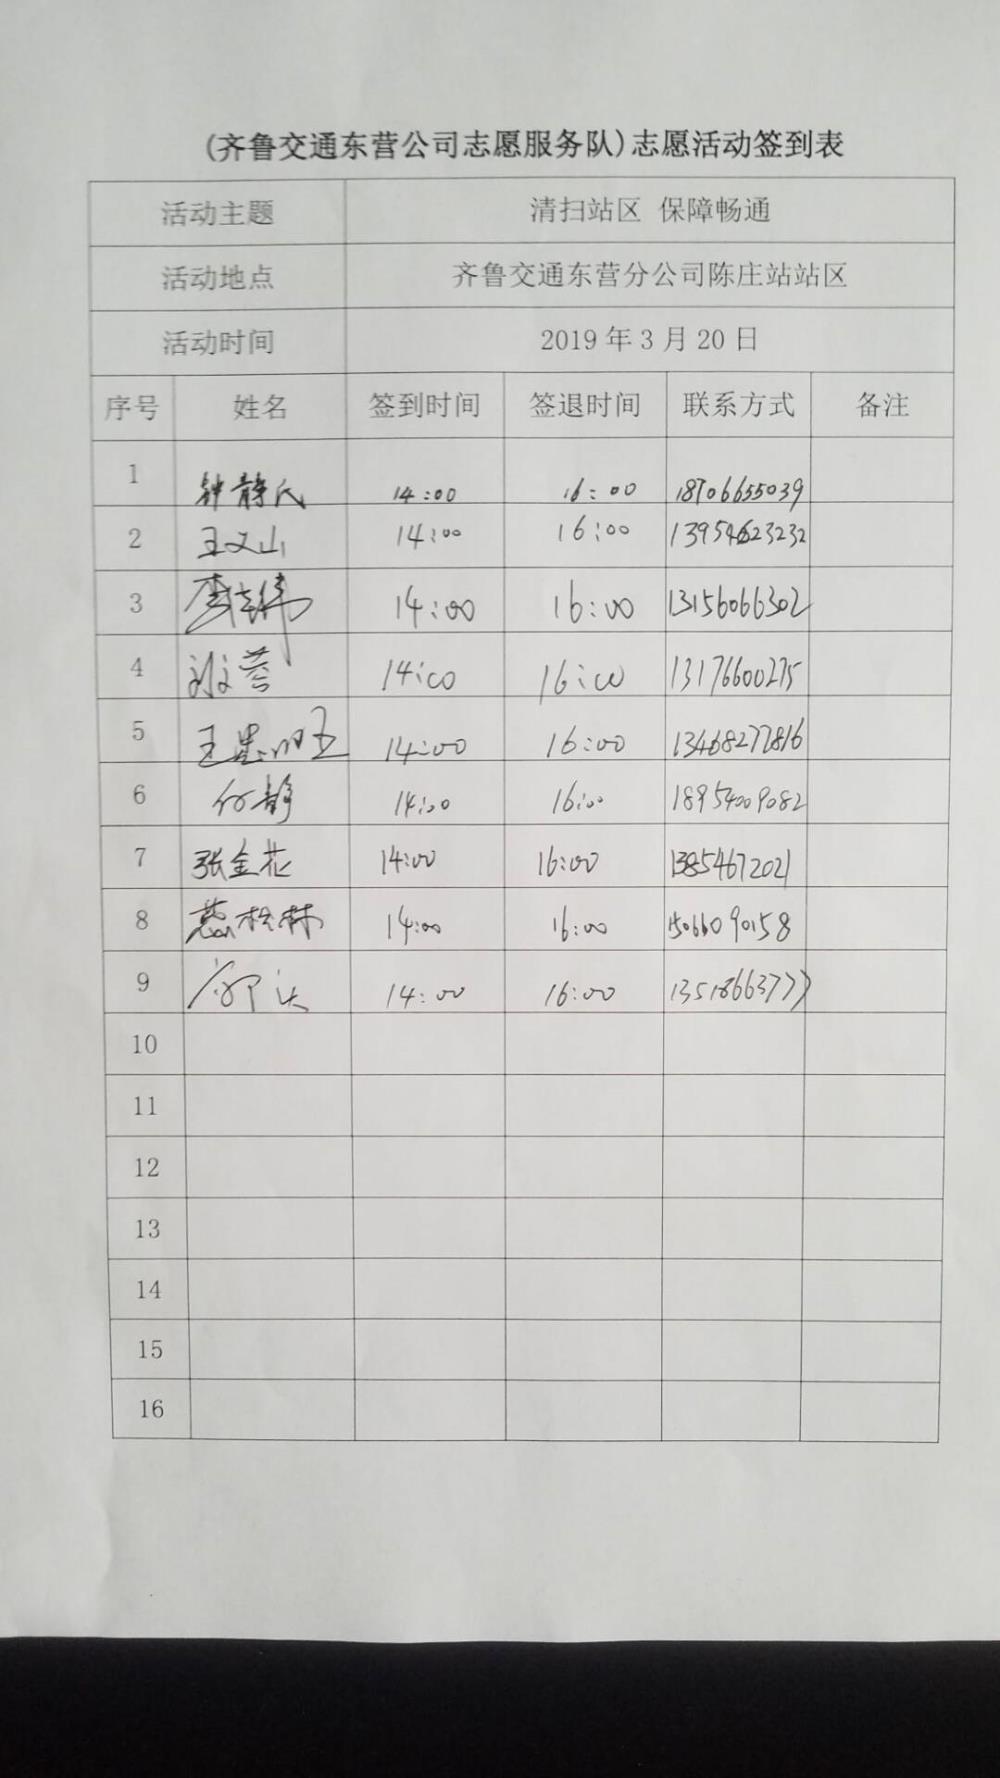 (齐鲁交通东营公司志愿服务队)志愿活动签到表
活动主题 清扫站区 保障畅通
活动地点 齐鲁交通东营分公司陈庄站站区
活动时间 2019年3月20日
序号 姓名 签到时间 签退时间 联系方式 备注
1 钟静氏 14:00 16:00 18706655039
2 王文山 14:00 16:00 13954623232
3 李志伟 14:00 16:00 13156066302
4 14:00 16:00 13176600275
5 14:00 16:00 13468277816
6 何静 14:00 16:00 18954009082
7 张金花 14:00 16:00 13854672021
8 14:00 16:00 15066090158
9 14:00 16:00 13518663777
10
11
12
13
14
15
16